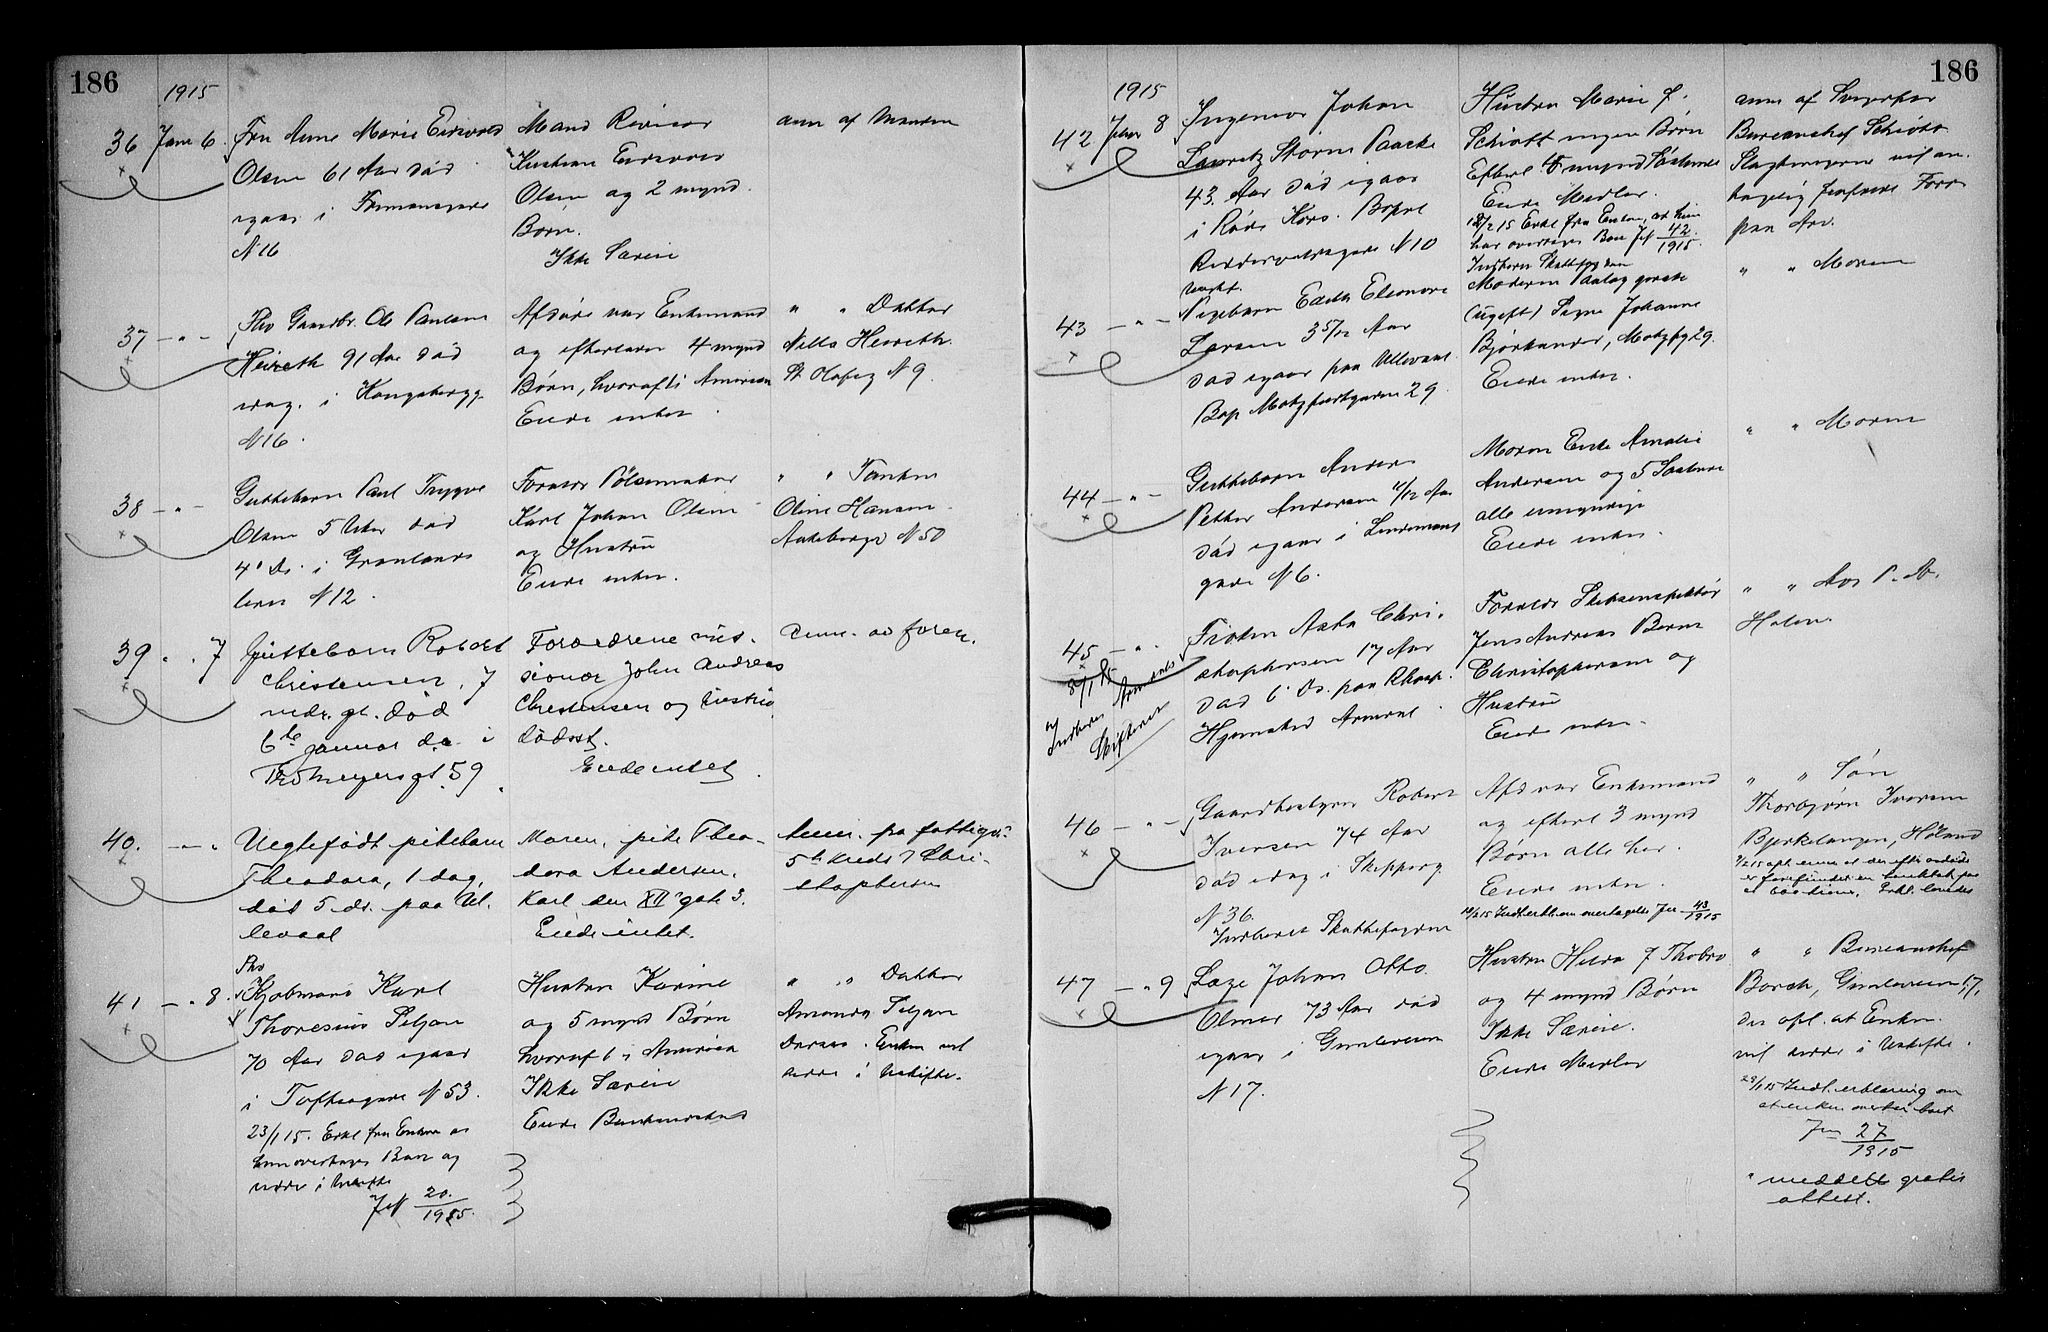 186
1915
36 Janr 6. Fru Anne Marie Eidsvold
Olsen 61 Aar død
igaar i Fossumsgade
N 16
Mand Revisor
Kristian Eidsvold
Olsen og 2 mynd.
Børn.
Ikke Særeie
anm af Manden
37 — " — Fhv Gaardbr. Ole Paulsen
Heireth 91 Aar død
idag i Kongsbergg
N 16.
Afdøde var Enkemand
og efterlader 4 mynd
Børn, hvoraf 1 i Amerika
Eiede intet.
" " Datter
Heireth.
St Olafsg N 9.
38 — " — Guttebarn Paul Trygve
Olsen 5 Uker død
4' ds. i Grønlands
leret N 12.
Forældre Pølsemaker
Karl Johan Olsen
og Hustru
Eiede intet.
" " Tanten
Oline Hansen
Aakebergv N 50
39 " . 7 Guttebarn Robert
Christensen, 7
mdr. gl. død
6te januar d.a. i
Ths Meyersgt. 59.
Forældrene mis-
sionær John Andreas
Christensen og hustru
dødst.
Eiede intet.
Anm. av foræl.
40. — " Uegtefødt pikebarn
Theodora, 1 dag,
død 5 ds. paa Ul-
levaal
Moren, pike Theo-
dora Andersen,
Karl den XII' gate 3.
Eiede intet.
Anm. fra fattigv:
5te kreds v Chri-
stophersen
41 — " 8. Fhv
Kjøbmand Karl
Thoresius Seljan
70 Aar død igaar
i Toftesgade N 53.
23/1 15. Erkl fra Enken at
hun overtager Boet og
sidder i Uskifte
J N 20./1915.
Hustru Karine
og 5 mynd Børn
hvoraf 1 i Amerika
Ikke Særeie
Eiede
" " Datter
Amanda Seljan
Dersts. Enken vil
sidde i Uskifte.
186
1915
42 Janr 8 Ingeniør Johan
Lauritz Storm Paaske
43 Aar død igaar
i Røde Kors. Bopæl
Riddervoldsgade N 10
Hustru Marie f.
Schiøtt ingen Børn
Efterl. 5 mynd Søskende
Eiede Midler.
12/2 15 Erkl fra Enken, at hun
har overtaget Boet J N 42./1915.
Indberet Skattefogden
anm af Svigerfar
Bureauchef Schiøtt
Slagtningerne vil an-
Forr
paa Arv.
43 — " — Pigebarn Edith Eleonora
Larsen 3 5/12 Aar
død igaar paa Ullevaal
Bop Motzfeldtgaden 29.
Moderen
(ugift) Signe Johanne
Bjørkander, Motzfg 29.
Eiede intet.
" " Moren
44 — " — Guttebarn Anders
Petter Andersen 11/12 Aar
død igaar i Lindemans
gade N 6.
Moren Enke Amalie
Andersen og 5 Søskende
alle umyndige
Eiede intet.
" " Moren
45 — " . Frøken Asta Chri-
stophersen 17 Aar
død 6' ds. paa Rhosp.
Hjemsted Arendal.
8/1 15
Indberet Arendals
Skifteret
Forældre Skibsinspektør
Jens Andreas Bernt
Christophersen og
Hustru
Eiede intet.
" " Adv P. A.
Holm.
46 — " — Gaardbestyrer Robert
Iversen 74 Aar
død idag i Skipperg
N 36.
Indberet Skattefogden
Afd var Enkemand
og efterl 3 mynd
Børn alle her.
Eiede intet.
J N 43/1915
" " Søn
Thorbjørn Iversen
Bjørkelangen, Høland
47 — " 9 Læge Johan Otto
Olmar 73 Aar død
igaar i Gimleveien
N 17.
Hustru Hilda f Thobro
og 4 mynd Børn
Ikke Særeie.
Eiede Midler
" " Bureauchef
Borch, Gimleveien 17,
der opl. at Enken
vil sidde i Uskifte.
29/1 15 Indl. erklæring om
at enken overtar boet
J N 27/1915
" meddelt gratis
attest.